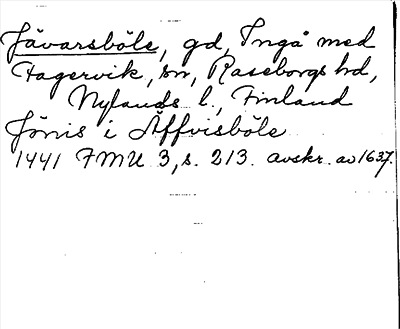 Jävarsböle, gd, Ingå med
Fagervik, sn, Raseborgs hd,
Nylands l., Finland
Jönis i Äffvisböle
1441 FMU 3, s. 213. avskr. av 1637.